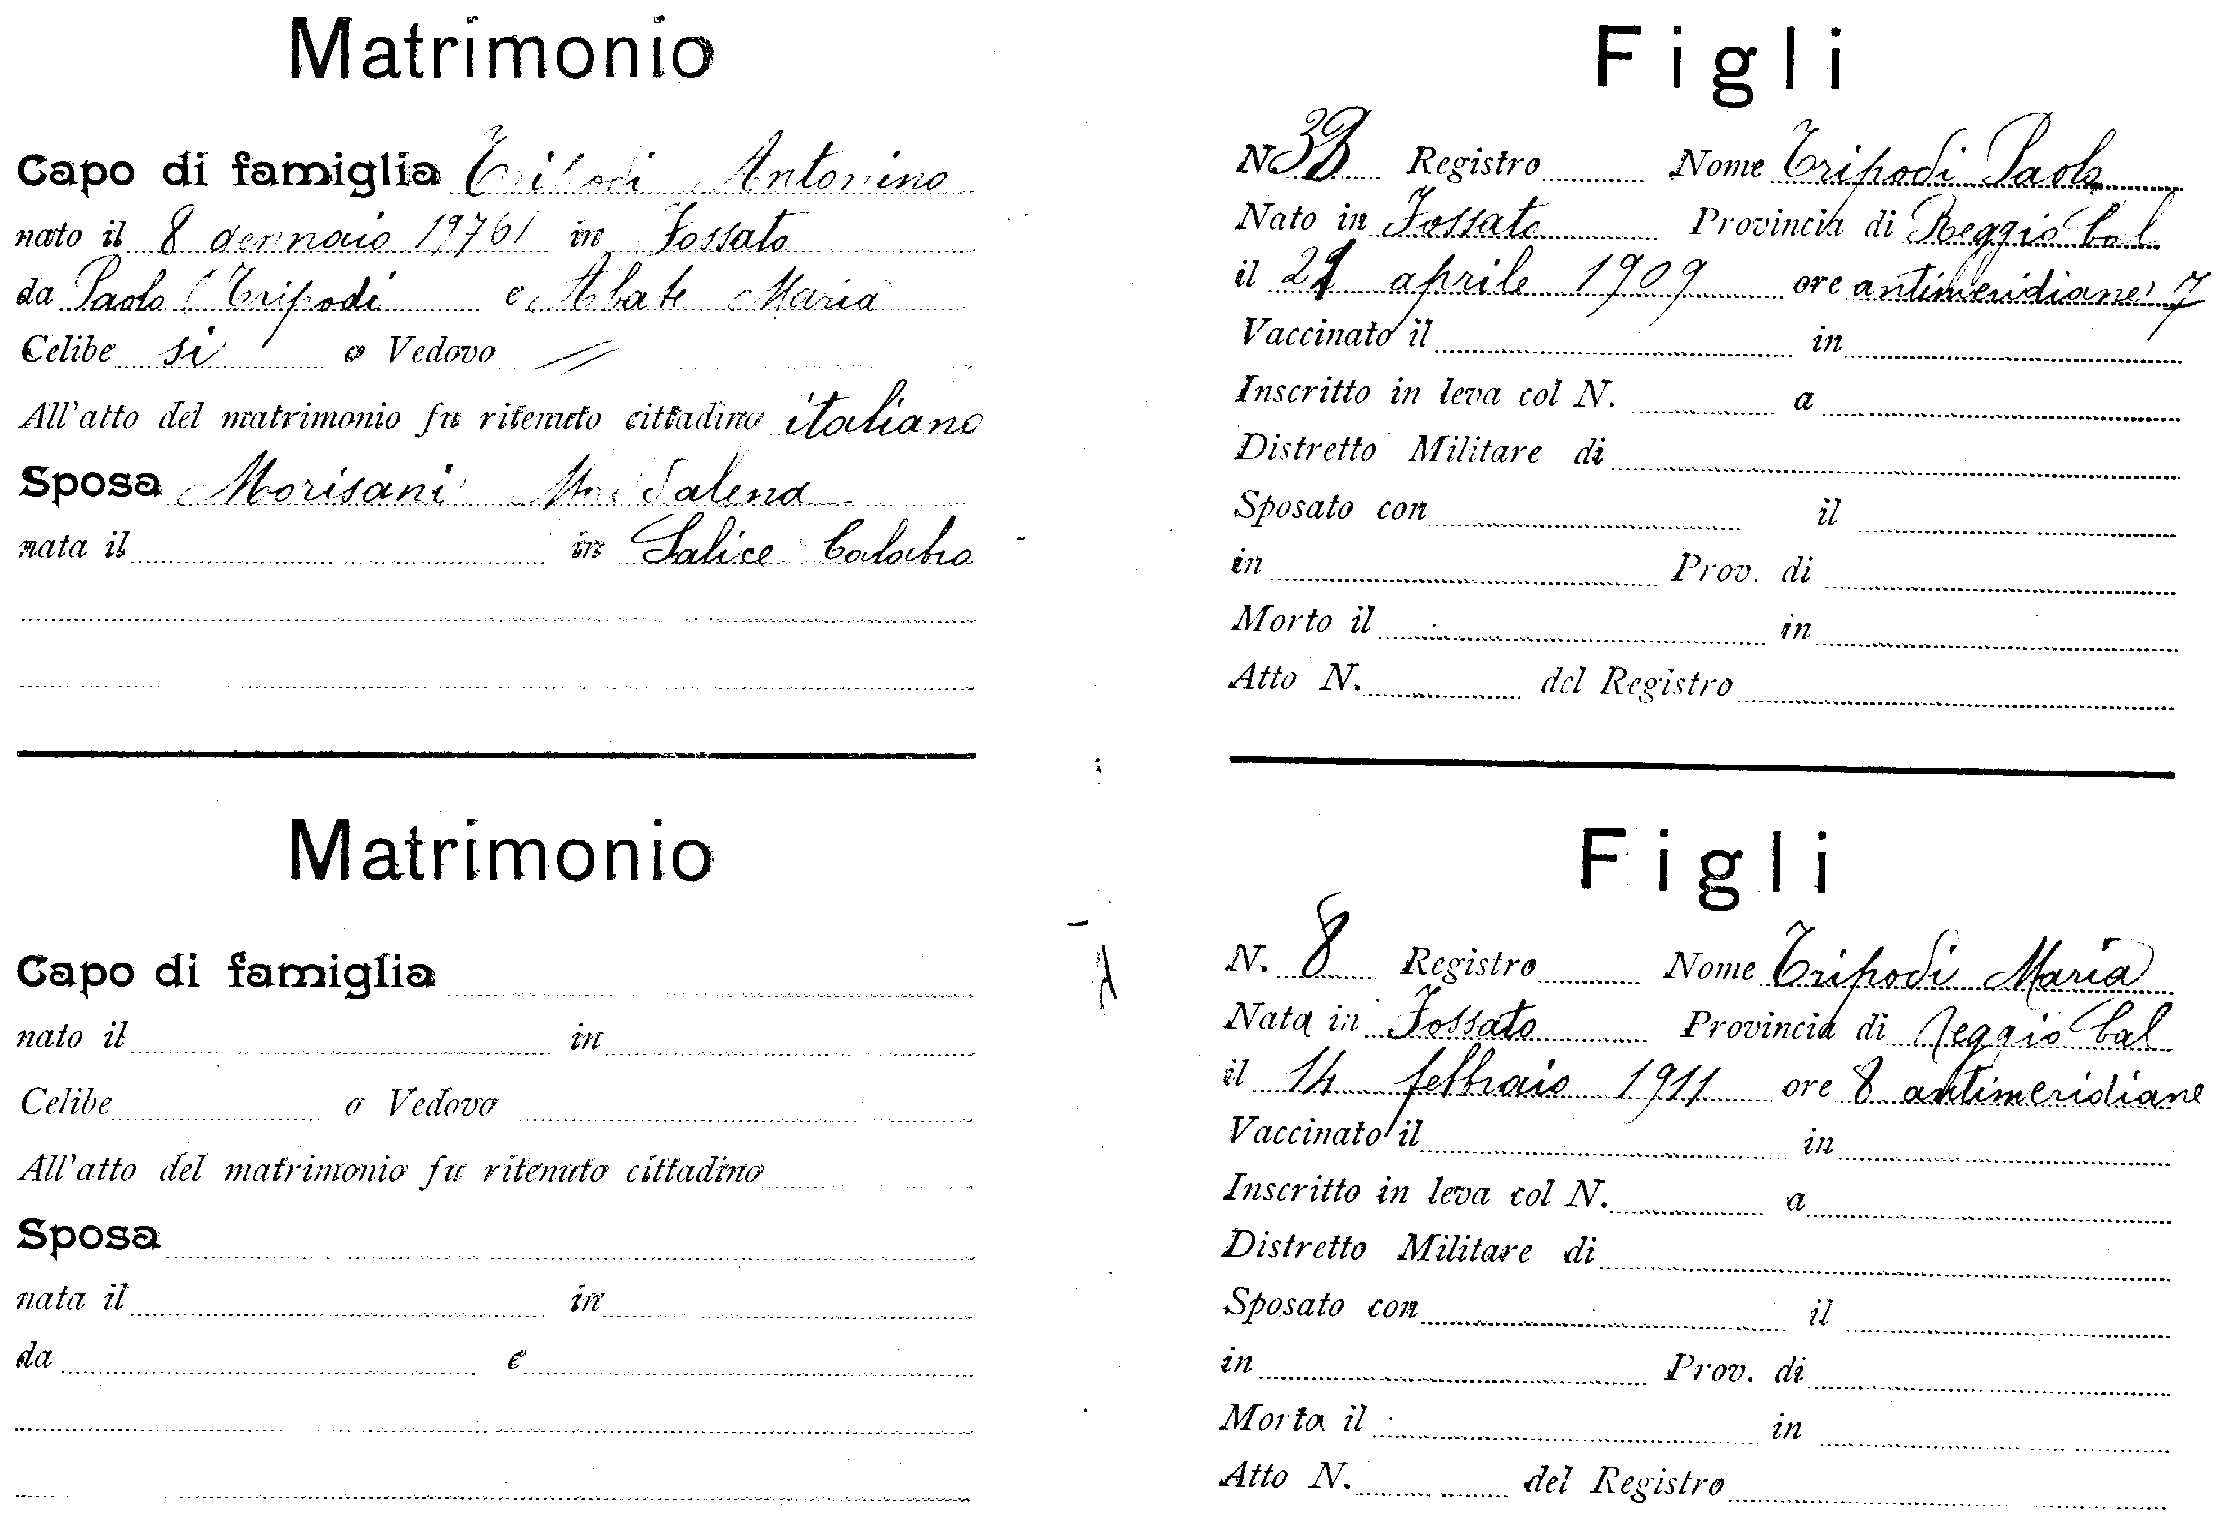 Matrimonio
Capo di famiglia Tripodi Antonino
nato il 8 gennaio in Fossato
da Paolo Tripodi e Abate Maria
Celibe si o Vedovo //
All'atto del matrimonio fu ritenuto cittadino italiano
Sposa Morisani Maddalena
nata il in Salice Calabro
Matrimonio
Capo di famiglia
nato il in
Celibe o Vedovo
All'atto del matrimonio fu ritenuto cittadino
Sposa
nata il in
da e
Figli
N. Registro Nome Tripodi Paolo
Nato in Fossato Provincia di Reggio Cal
il aprile 1909 ore antimeridiane 7
Vaccinato il in
Inscritto in leva col N. a
Distretto Militare di
Sposato con il
in Prov. di
Morto il in
Atto N. del Registro
Figli
N. 8 Registro Nome Tripodi Maria
Nata in Fossato Provincia di Reggio Cal
il 14 febbraio 1911 ore 8 antimeridiane
Vaccinato il in
Inscritto in leva col N. a
Distretto Militare di
Sposato con il
in Prov. di
Morta il in
Atto N. del Registro